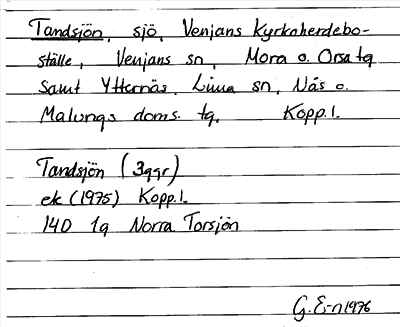 Tandsjön, sjö, Venjans Kyrkoherdebo-
ställe, Venjans sn, Mora o. Orsa tg
samt Ytternäs, Lima sn, Nås o.
Malungs doms. tg. Kopp. l.
Tandsjön (3ggr)
ek (1975) Kopp. l.
14D 1g Norra Torsjön
G. E-n 1976